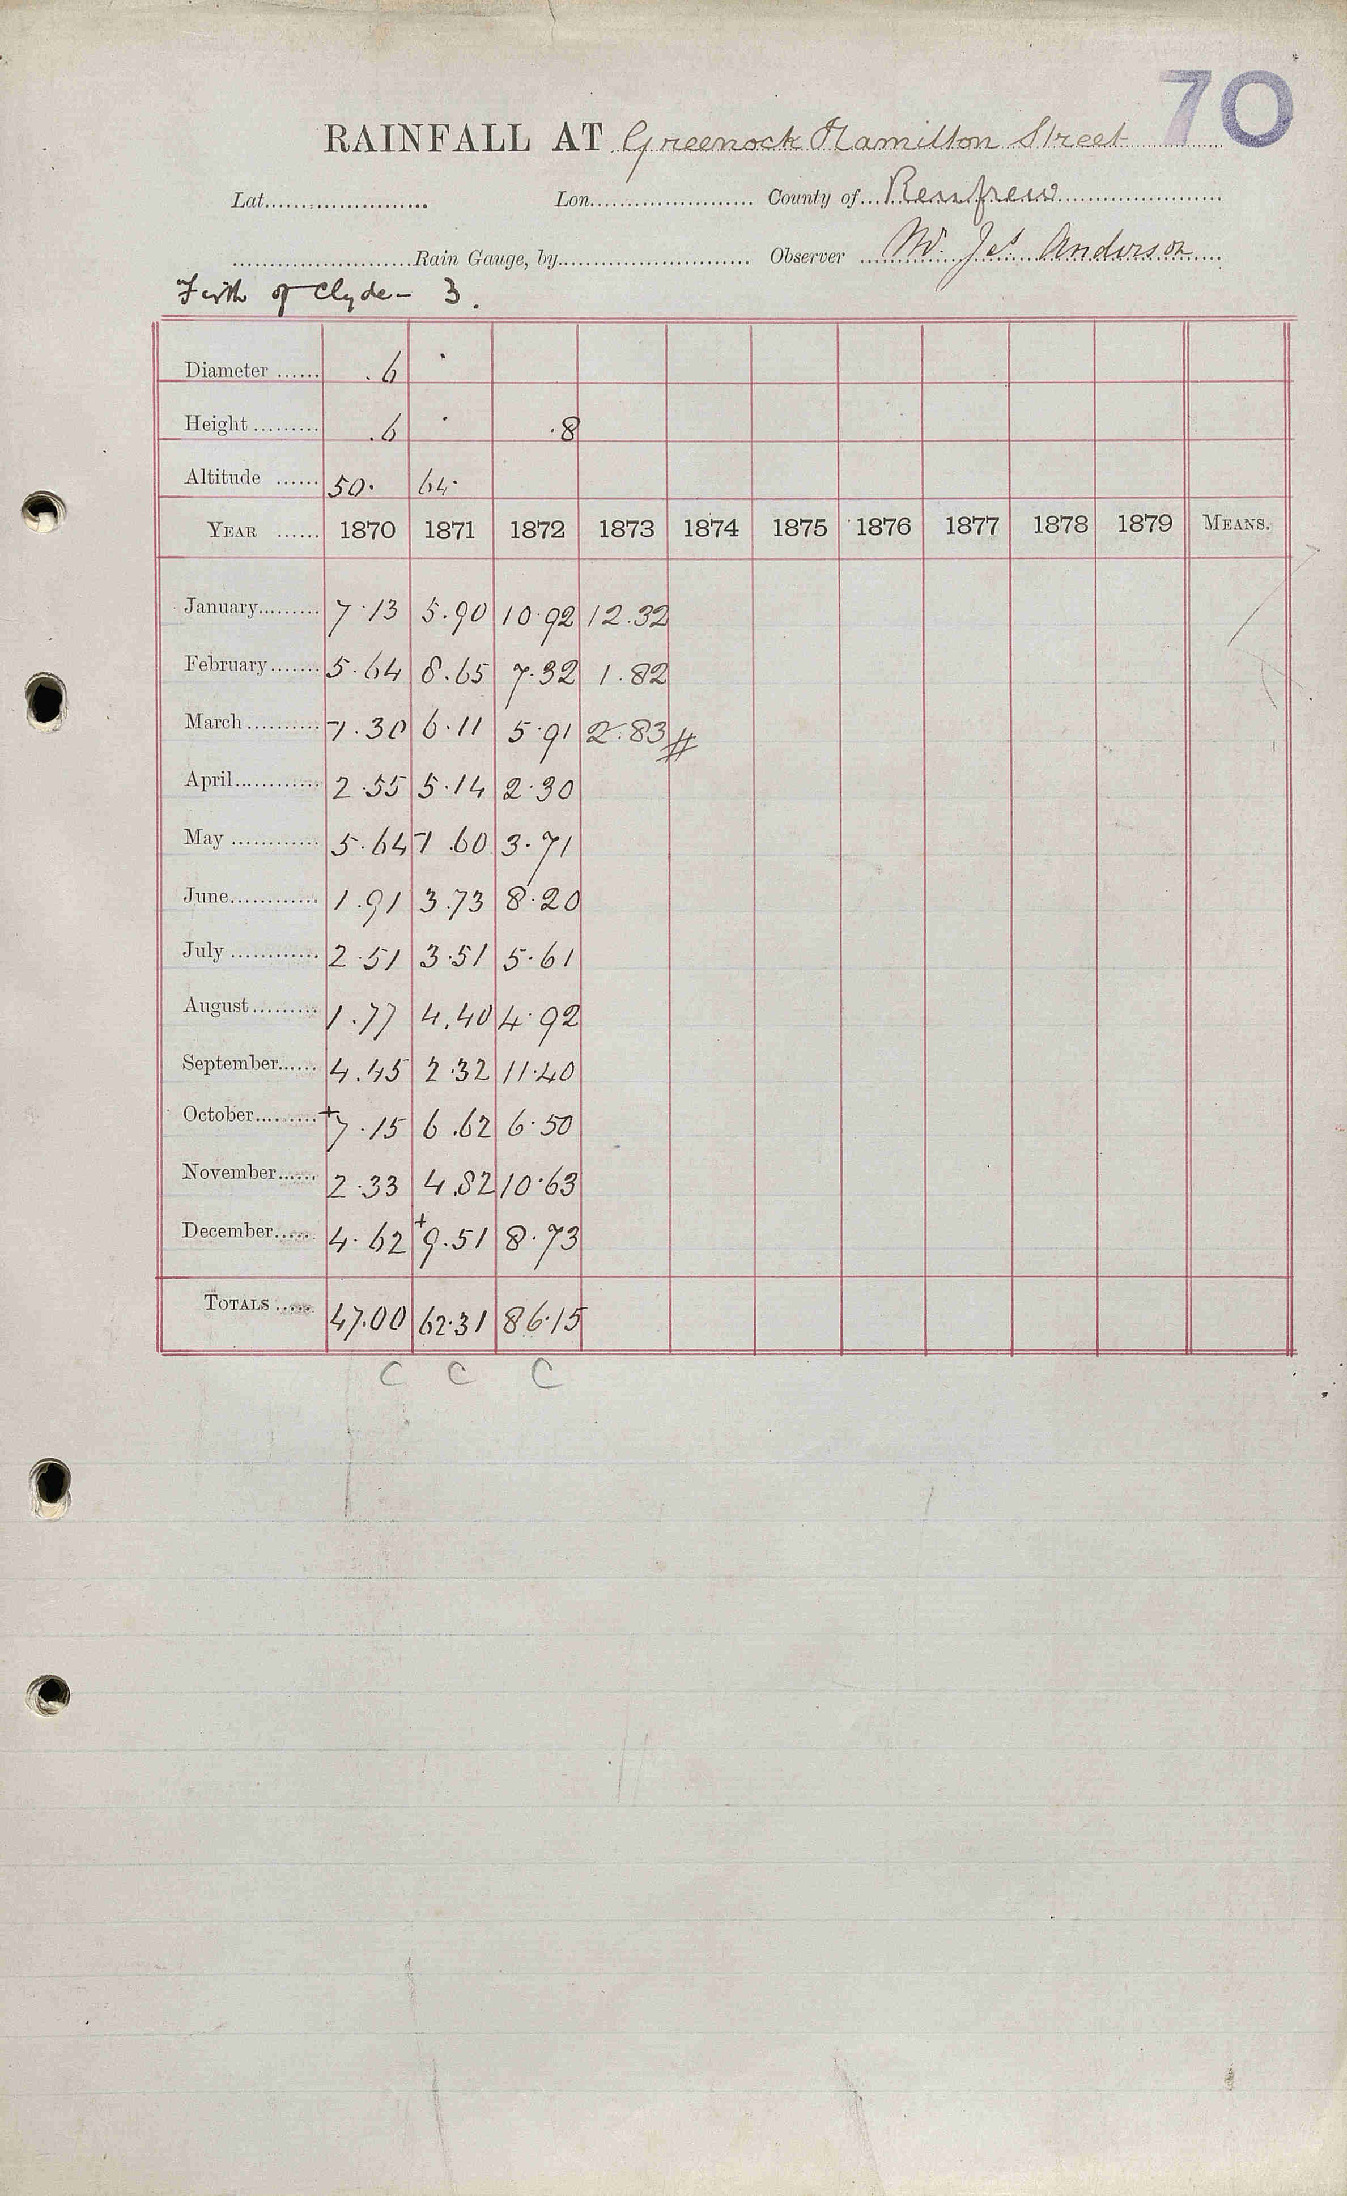 70
RAINFALL AT Greenock Hamilton Street
Lat. Lon. County of Renfrew
Rain Gauge, by Observer Mr. Jas Anderson
Firth of Clyde - 3.
Diameter ...... .6
Height ......... .6 .8
Altitude ...... 50. 64.
YEAR ...... 1870 1871 1872 1873 1874 1875 1876 1877 1878 1879 MEANS.
January......... 7.13 5.90 10.92 12.32
February....... 5.64 8.65 7.32 1.82
March.......... -1.30 6.11 5.91 2.83 #
April............ 2.55 5.14 2.30
May ............ 5.64 -1.60 3.71
June............ 1.91 3.73 8.20
July ............ 2.51 3.51 5.61
August......... 1.77 4.40 4.92
September...... 4.45 2.32 11.40
October......... +7.15 6.62 6.50
November...... 2.33 4.82 10.63
December...... 4.62 +9.51 8.73
TOTALS ...... 47.00 62.31 86.15
C C C